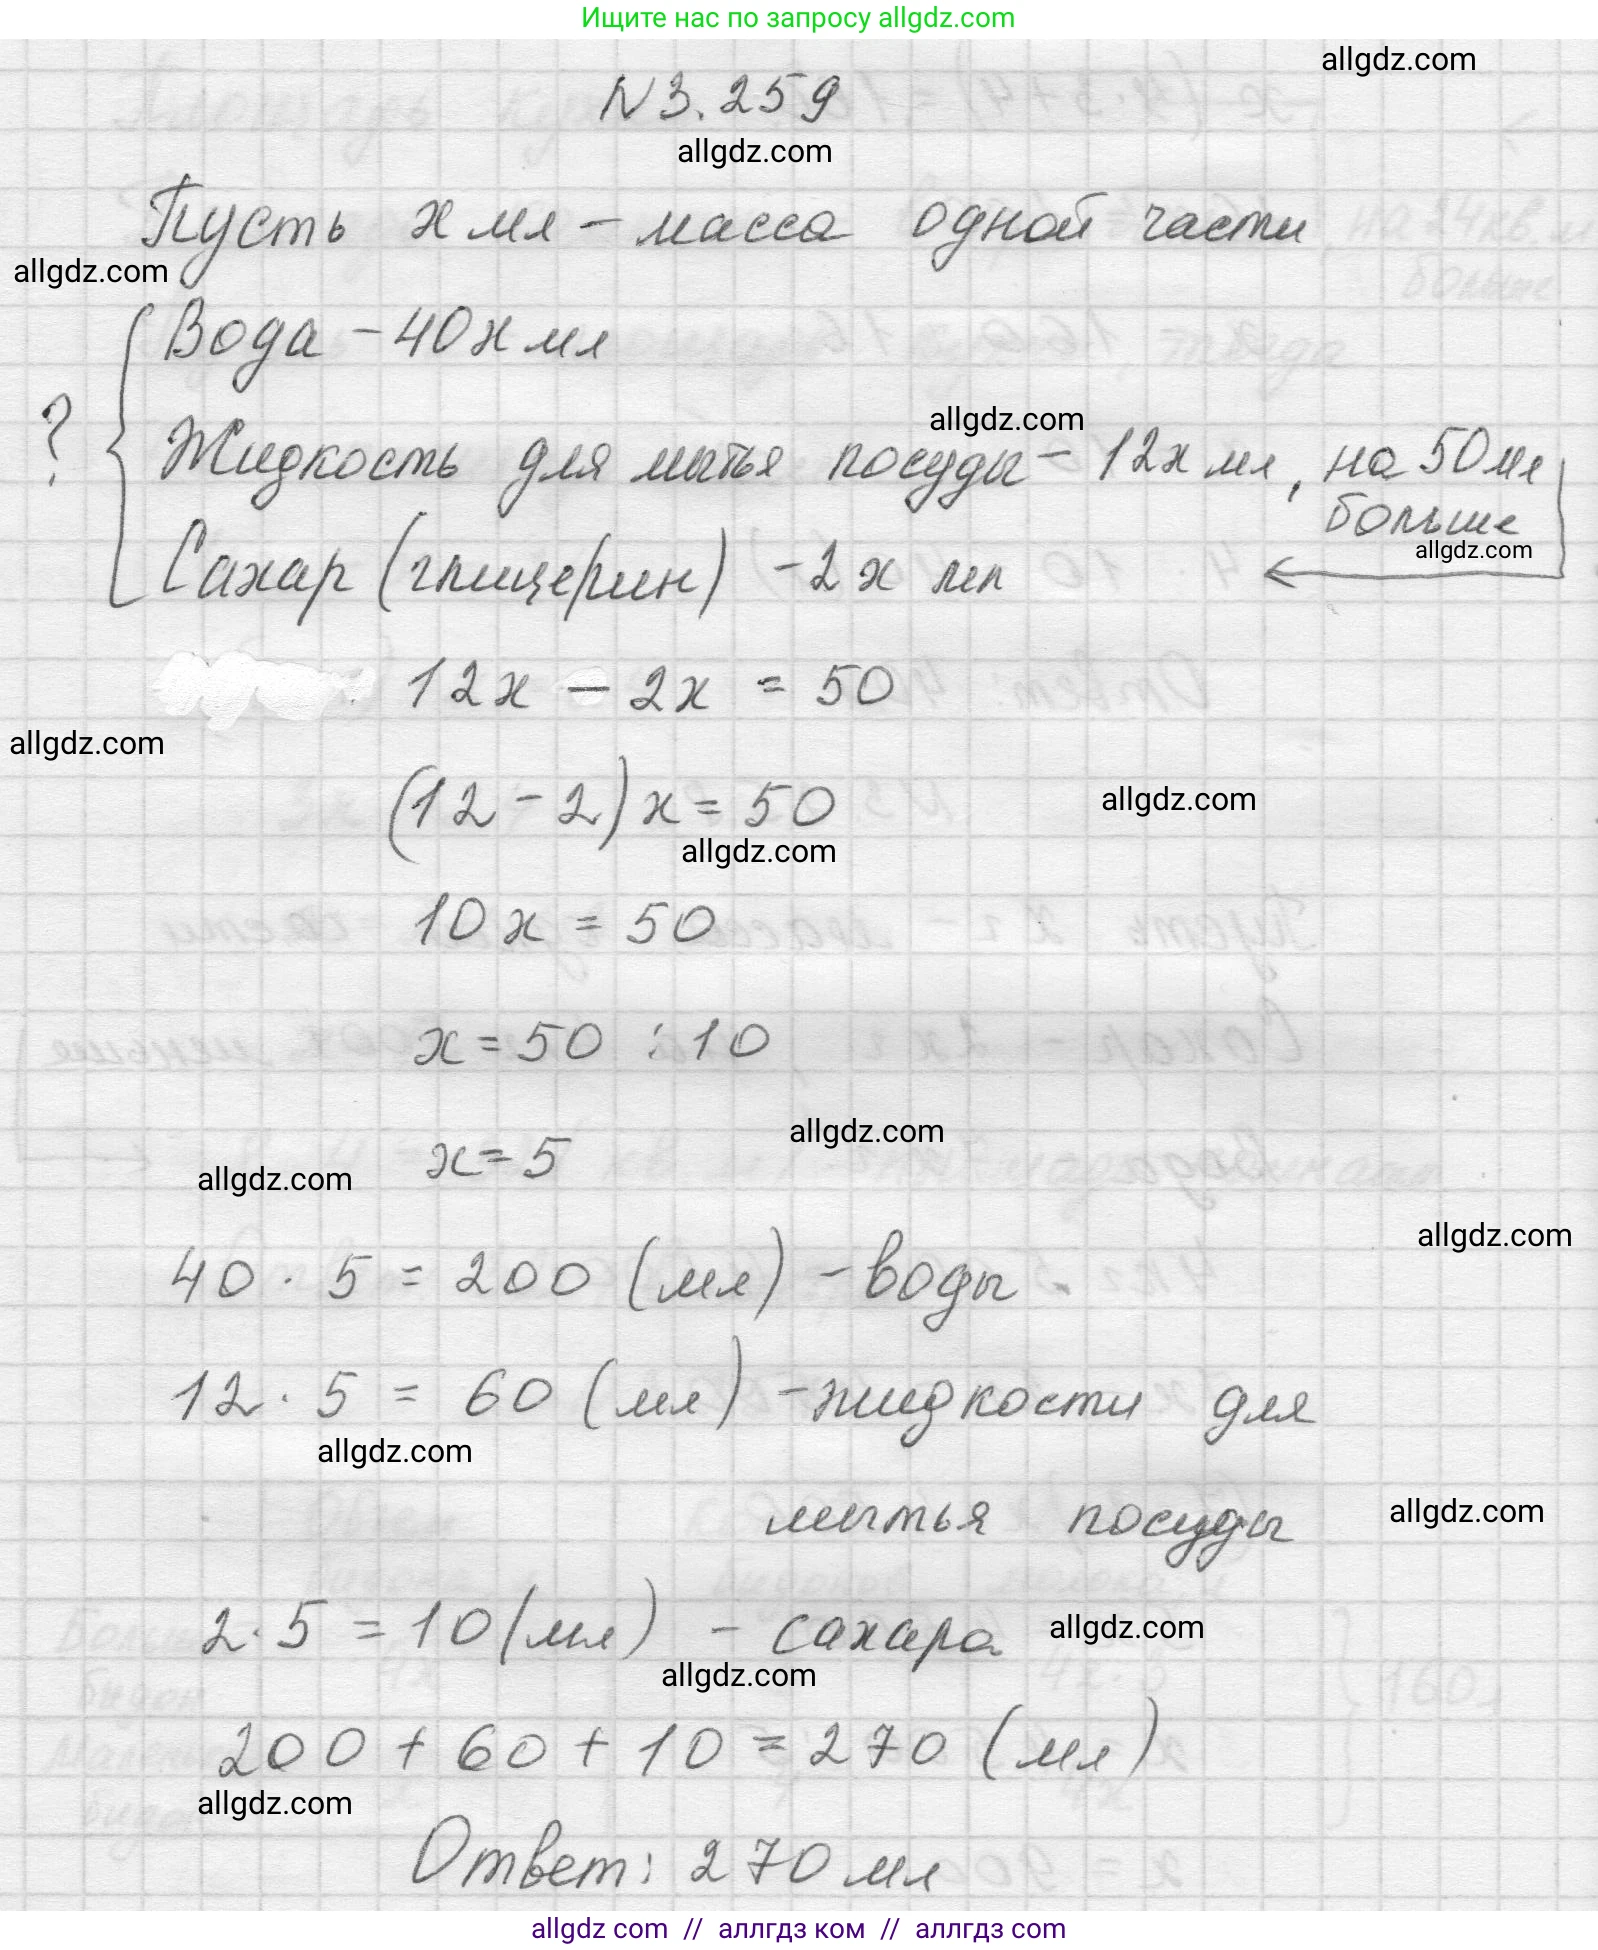 Ищите нас по запросу allgdz.com
allgdz.com
N 3.259
allgdz.com
Пусть x мл – масса одной части
allgdz.com
Вода – 40x мл
allgdz.com
? { Жидкость для мытья посуды – 12x мл, на 50 мл
больше
allgdz.com
Сахар (глицерин) – 2x мл
12x – 2x = 50
allgdz.com
(12 – 2) x = 50
allgdz.com
allgdz.com
10x = 50
x = 50 : 10
allgdz.com
x = 5
allgdz.com
allgdz.com
40 · 5 = 200 (мл) – воды
12 · 5 = 60 (мл) – жидкости для
allgdz.com
мытья посуды
allgdz.com
2 · 5 = 10 (мл) – сахара
allgdz.com
allgdz.com
200 + 60 + 10 = 270 (мл)
allgdz.com
Ответ: 270 мл
allgdz.com // аллгдз ком // аллгдз com